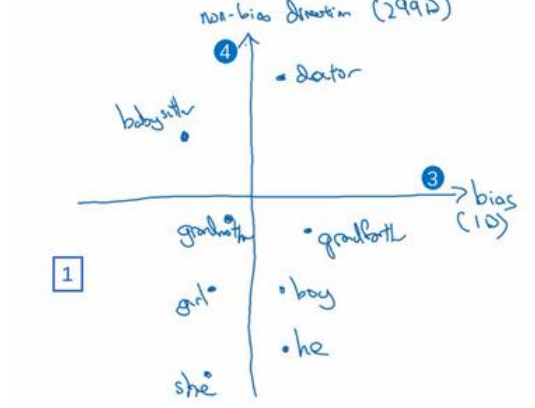 non-bias direction (299D)
4
doctor
babysitter
3
bias
(1D)
grandmother
grandfather
1
girl
boy
he
she